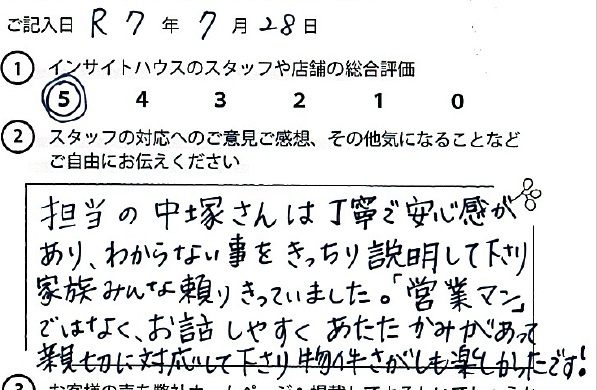 ご記入日 R 7 年 7 月 28 日
① インサイトハウスのスタッフや店舗の総合評価
5 4 3 2 1 0
② スタッフの対応へのご意見ご感想、その他気になることなど
ご自由にお伝えください
担当の中塚さんは丁寧で安心感が
あり、わからない事をきっちり説明して下さり
家族みんな頼りきっていました。「営業マン」
ではなく、お話しやすくあたたかみがあって
親切に対応して下さり物件さがしも楽しかったです!